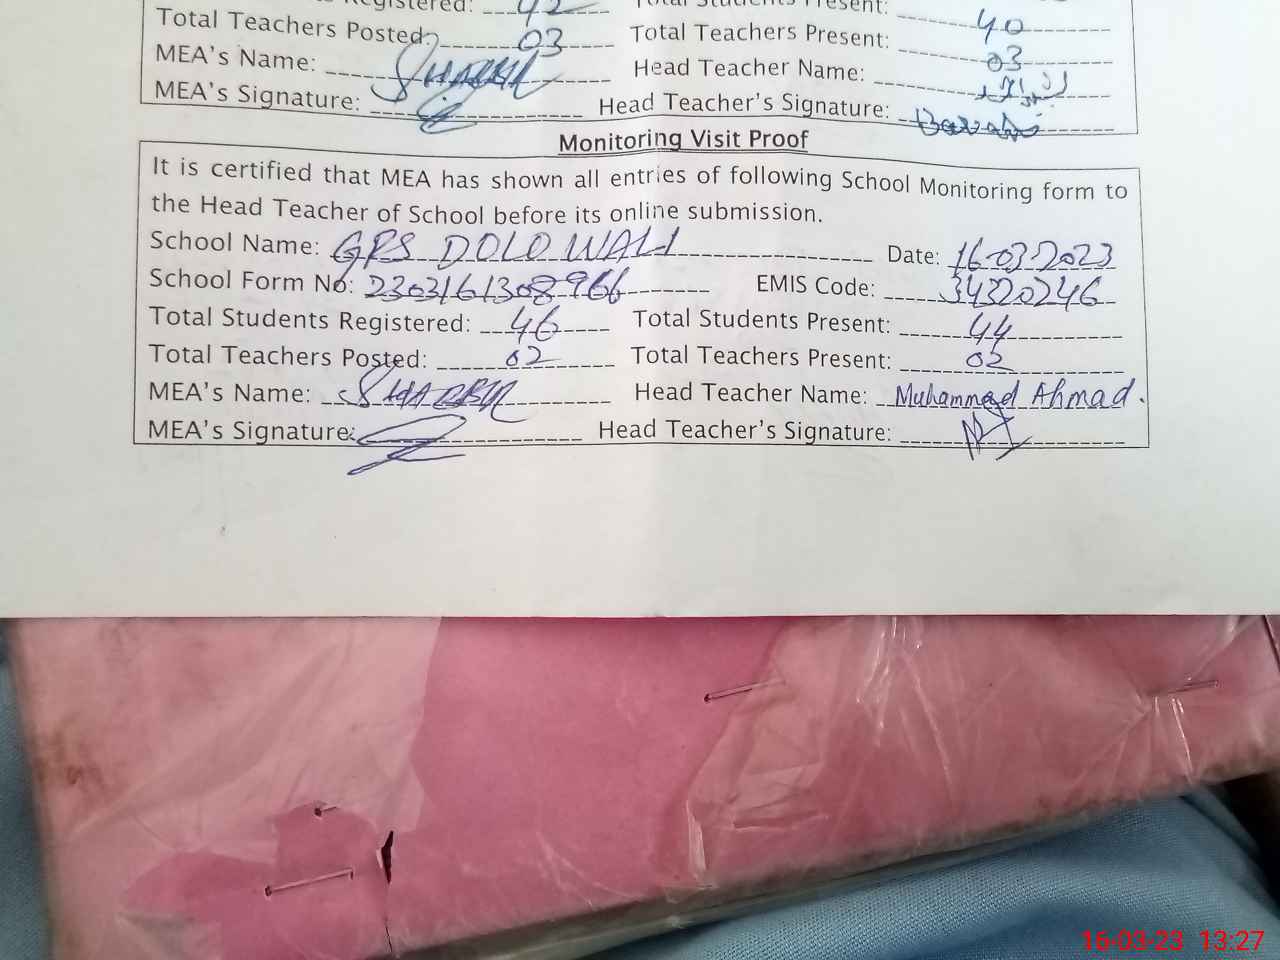 Registered: 42 Total Students Present: 40
Total Teachers Posted: 03 Total Teachers Present: 03
MEA's Name: SHABBIR Head Teacher Name:
MEA's Signature: Head Teacher's Signature:
Monitoring Visit Proof
It is certified that MEA has shown all entries of following School Monitoring form to
the Head Teacher of School before its online submission.
School Name: GPS DOLO WALI Date: 16-03-2023
School Form No: 2303161308966 EMIS Code: 34320246
Total Students Registered: 46 Total Students Present: 44
Total Teachers Posted: 02 Total Teachers Present: 02
MEA's Name: SHABBIR Head Teacher Name: Muhammad Ahmad.
MEA's Signature: Head Teacher's Signature:
16-03-23 13:27